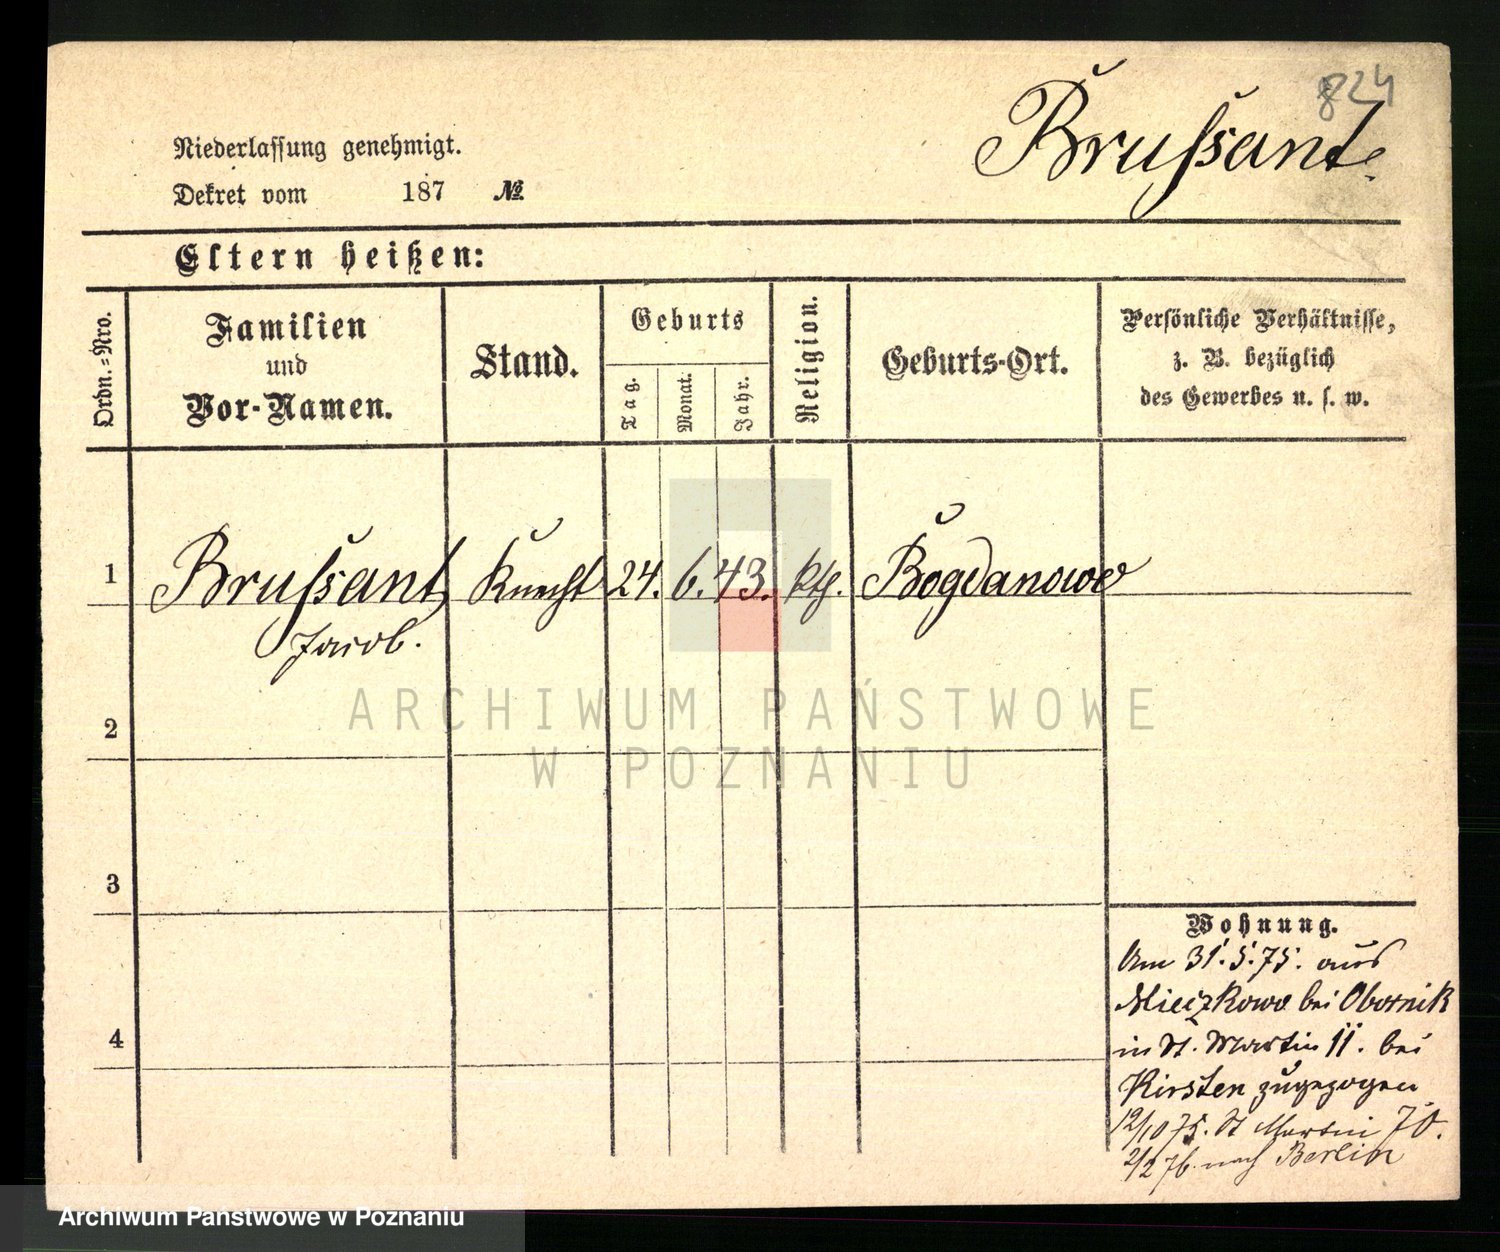 824
Brussant.
Niederlassung genehmigt.
Dekret vom 187 №
Eltern heißen:
Ordn.-Nro.
Familien
und
Vor-Namen.
Stand.
Geburts
Tag.
Monat.
Jahr.
Religion.
Geburts-Ort.
Persönliche Verhältnisse,
z. B. bezüglich
des Gewerbes u. s. w.
1 Brussant, Knecht 24. 6. 43. kth. Bogdanowo
Jacob.
ARCHIWUM PAŃSTWOWE
W POZNANIU
2
3
4
Wohnung.
Am 31.5.75. aus
Mieczkowo bei Obornik
in St. Martin 11. bei
Kirsten zugezogen
12/10 75. St Martin 70.
2/2 76. nach Berlin
Archiwum Państwowe w Poznaniu